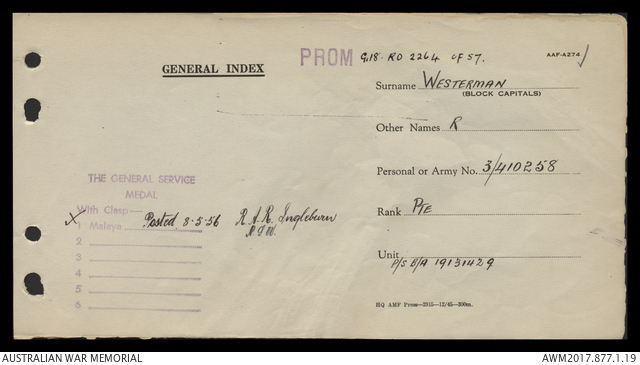 PROM G18 RO 2264 OF 57. AAF-A274
GENERAL INDEX
Surname WESTERMAN
(BLOCK CAPITALS)
Other Names R
Personal or Army No. 3/410258
Rank PTE
Unit
P/S B/A 19131429
THE GENERAL SERVICE
MEDAL
With Clasp—
X 1 Malaya Posted 8-5-56 R.A.R. Ingleburn
N.S.W.
2
3
4
5
6
HQ AMF Press—2315—12/45—300m.
AUSTRALIAN WAR MEMORIAL AWM2017.877.1.19